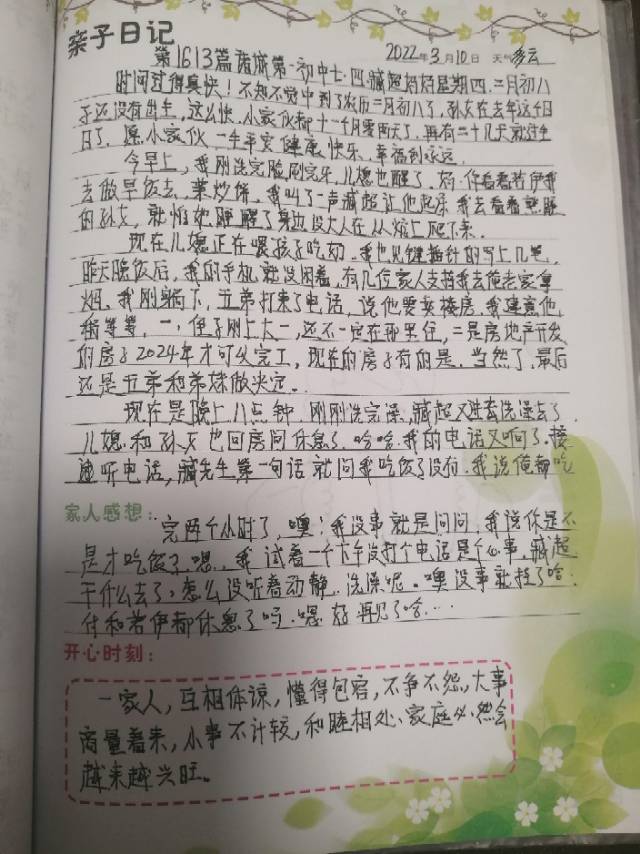 亲子日记
2022年3月10日 天气多云
第1613篇诸城第一初中七·四·臧超妈妈星期四.二月初八
时间过得真快！不知不觉中到了农历二月初八了，孙女在去年这个日
子还没有出生，这么快.小家伙都十一个月零两天了，再有二十几天就过生
日了，愿小家伙一生平安健康快乐.幸福到永远.
今早上，我刚洗完脸刷完牙，儿媳也醒了.妈.你看着若伊我
去做早饭去.菜炒饼.我叫了一声臧超让他起床我去看着熟睡
的孙女，就怕她睡醒了身边没大人在从炕上爬下来.
现在儿媳正在喂孩子吃奶.我也见缝插针的写上几笔.
昨天晚饭后，我的手机就没闲着，有几位家人支持我去俺老家拿
烟.我刚躺下，五弟打来了电话，说他要卖楼房.我建意他
稍等等，一，侄子刚上大一，还不一定在那里住，二是房地产开发
的房子2024年才可以完工，现在的房子有的是.当然了，最后
还是五弟和弟妹做决定.
现在是晚上八点钟.刚刚洗完澡.臧超又进去洗澡去了
儿媳和孙女也回房间休息了.哈哈.我的电话又响了.接
通听电话，臧先生第一句话就问我吃饭了没有.我说俺都吃
家人感想：
完两个小时了，噢！我没事就是问问，我说你是不
是才吃饭了.嗯，我试着一个下午没打个电话是个心事.臧超
干什么去了，怎么没听着动静.洗澡呢.噢没事就挂了哈.
付和若伊都休息了吗.嗯.好再见了哈…
开心时刻：
一家人，互相体谅，懂得包容，不争不怨，大事
商量着来，小事不计较，和睦相处、家庭必然会
越来越兴旺。